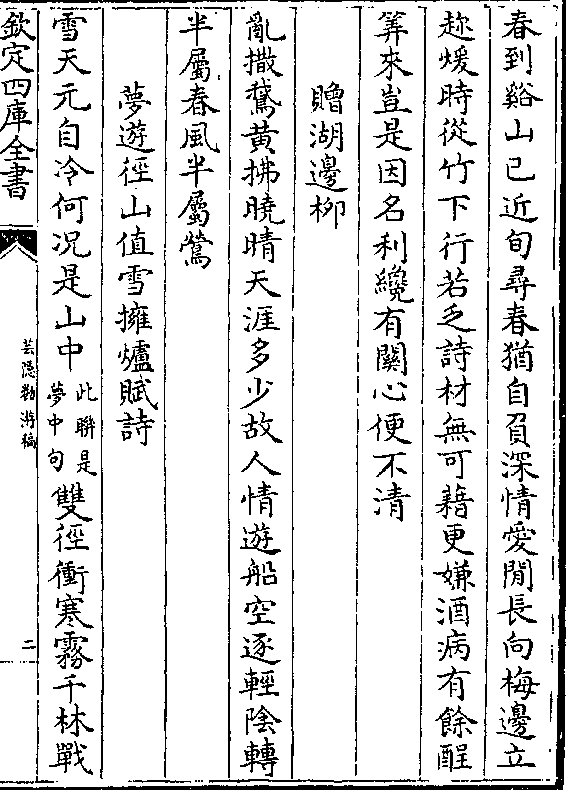 春到谿山已近旬尋春猶自負深情愛閒長向梅邊立
趂煖時從竹下行若乏詩材無可藉更嫌酒病有餘酲
筭來豈是因名利纔有關心便不清
贈湖邊柳
亂撒鵞黄拂曉晴天涯多少故人情遊船空逐輕陰轉
半屬春風半屬鶯
夢遊徑山值雪擁爐賦詩
雪天元自冷何况是山中此聨是夢中句雙徑衝寒霧千林戰
欽定四庫全書
芸隱勌游稿
二